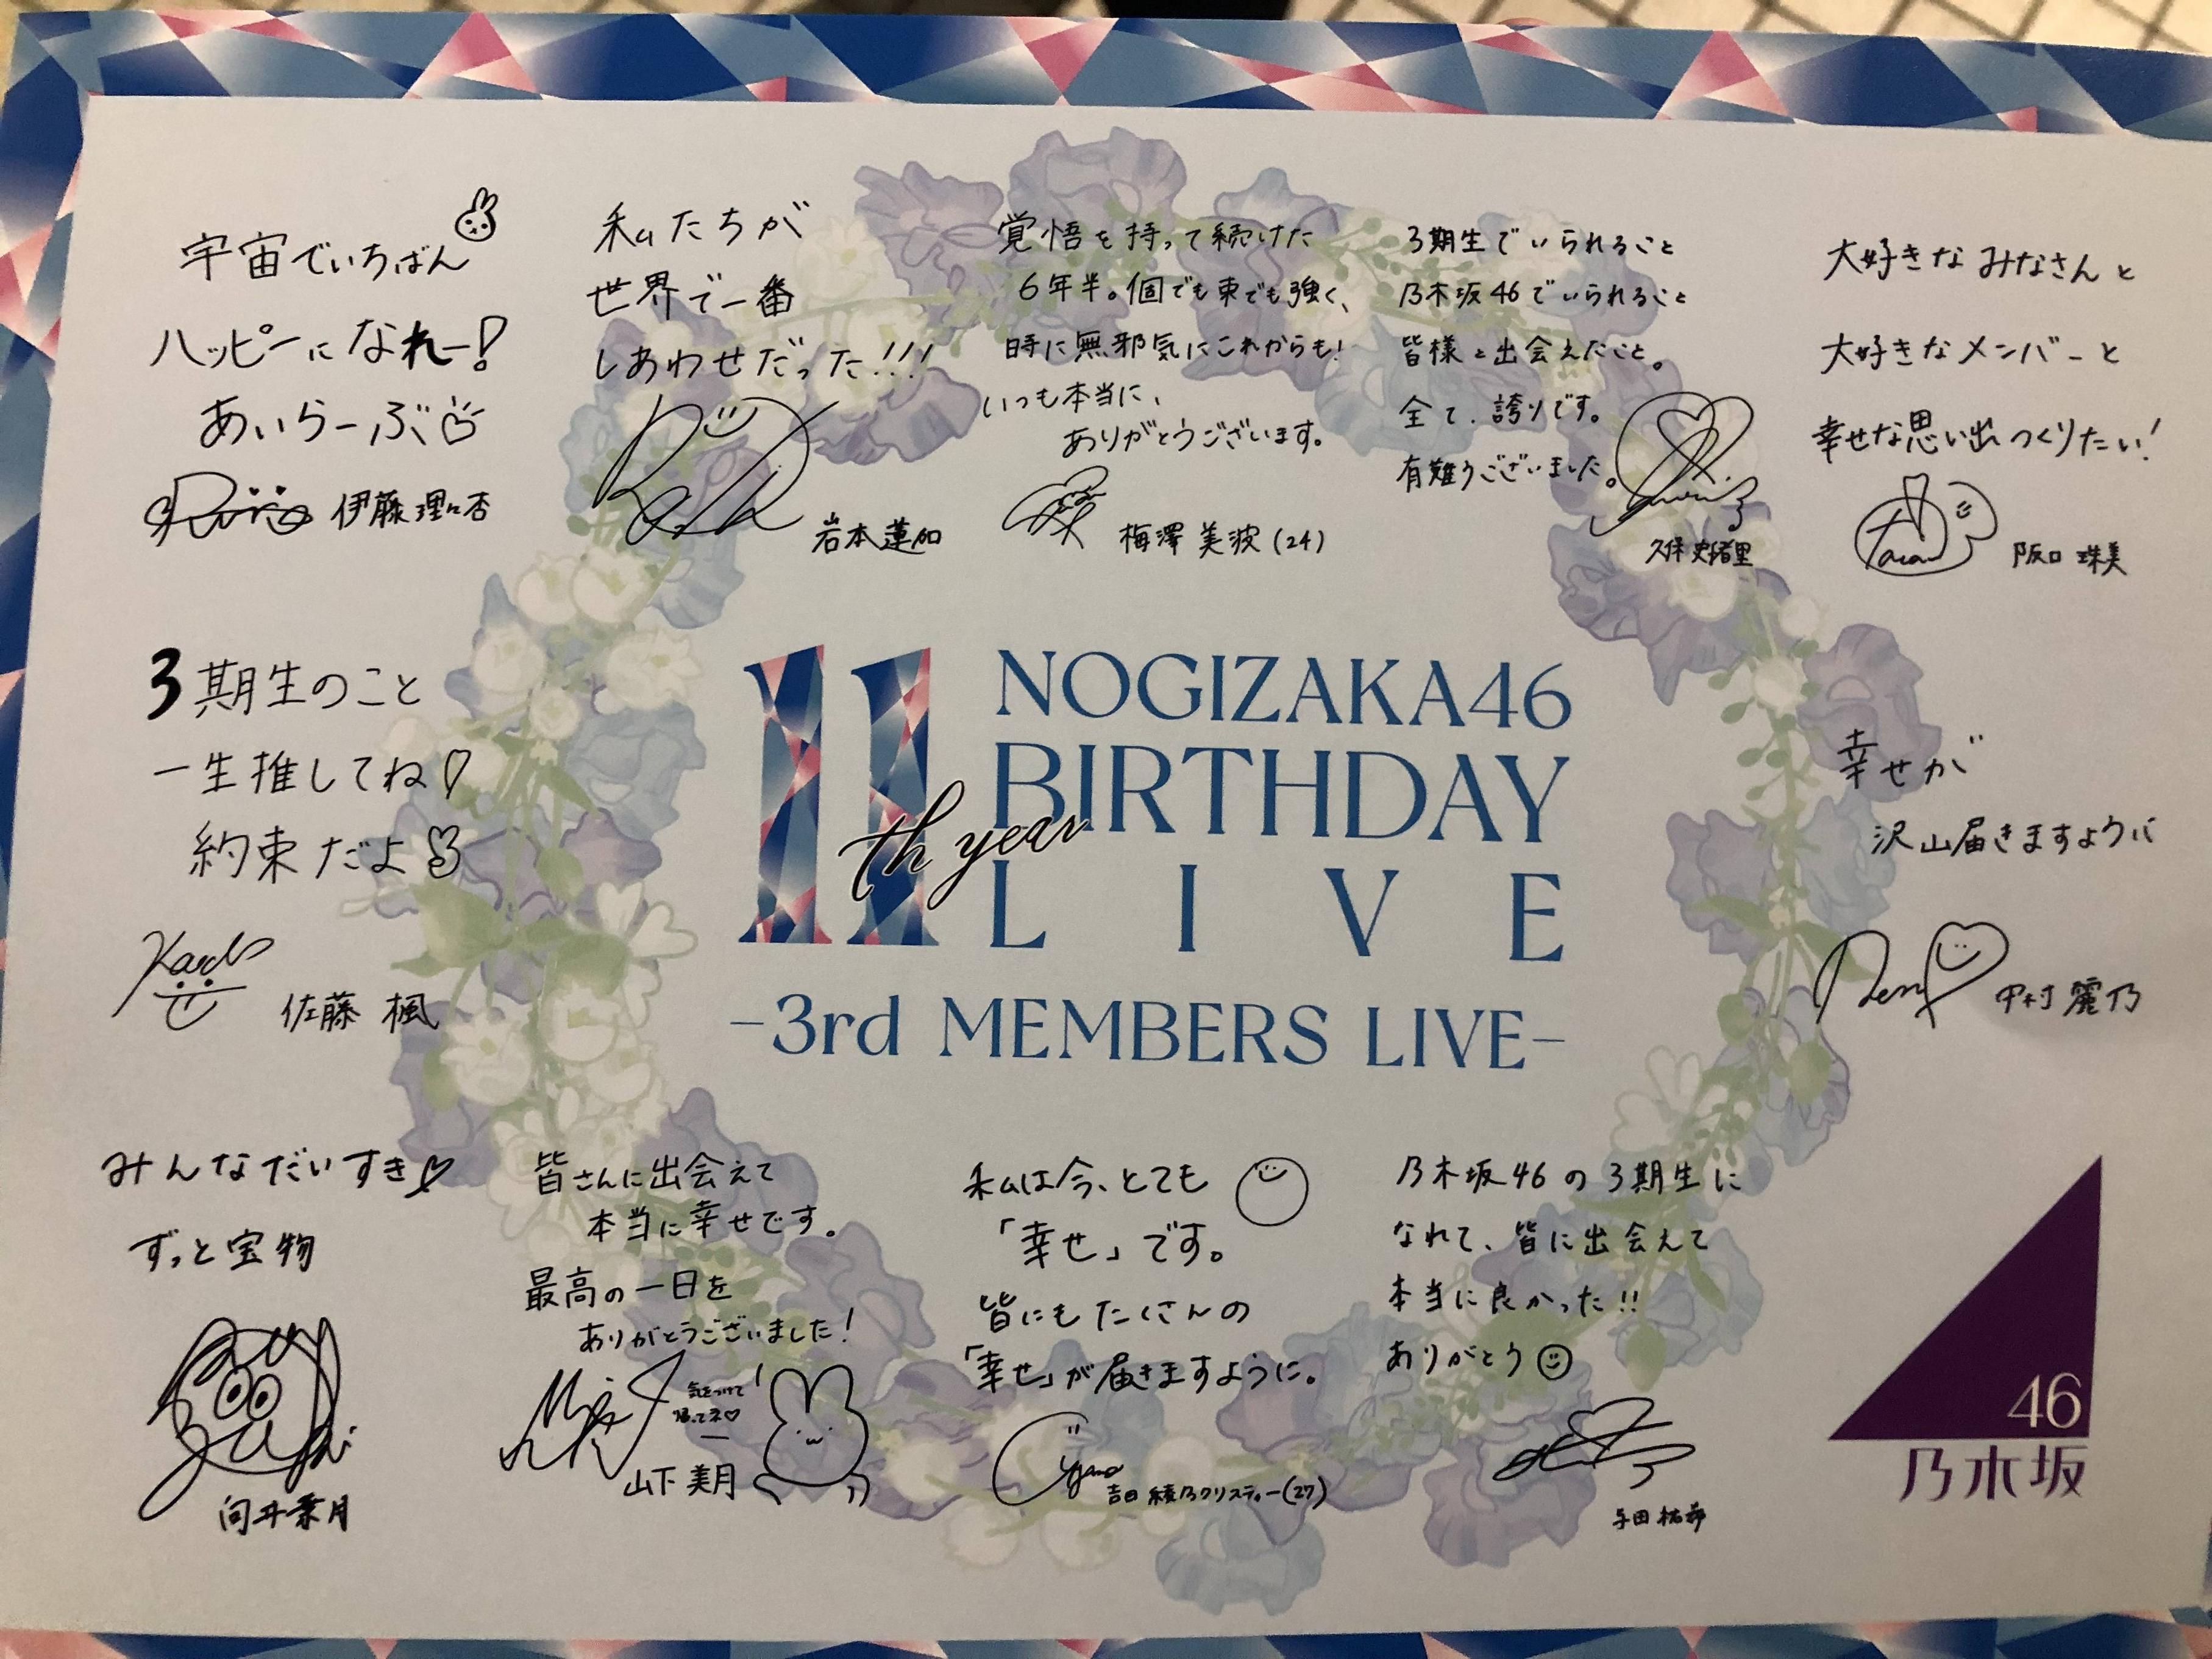 宇宙でいちばん
ハッピーになれー!
あいらーぶ
伊藤理々杏
私たちが
世界で一番
しあわせだった!!!
岩本蓮加
覚悟を持って続けた
6年半。個でも束でも強く、
時に無邪気にこれからも!
いつも本当に、
ありがとうございます。
梅澤美波(24)
3期生でいられること
乃木坂46でいられること
皆様と出会えたこと。
全て、誇りです。
有難うございました。
久保史緒里
大好きなみなさんと
大好きなメンバーと
幸せな思い出つくりたい!
阪口珠美
3期生のこと
一生推してね
約束だよ
佐藤 楓
11th year
NOGIZAKA46
BIRTHDAY
LIVE
-3rd MEMBERS LIVE-
幸せが
沢山届きますように
中村麗乃
みんなだいすき
ずっと宝物
向井葉月
皆さんに出会えて
本当に幸せです。
最高の一日を
ありがとうございました!
気をつけて
帰ってネ♡
山下美月
私は今、とても
「幸せ」です。
皆にもたくさんの
「幸せ」が届きますように。
吉田綾乃クリスティー(27)
乃木坂46の3期生に
なれて、皆に出会えて
本当に良かった!!
ありがとう
与田祐希
46
乃木坂